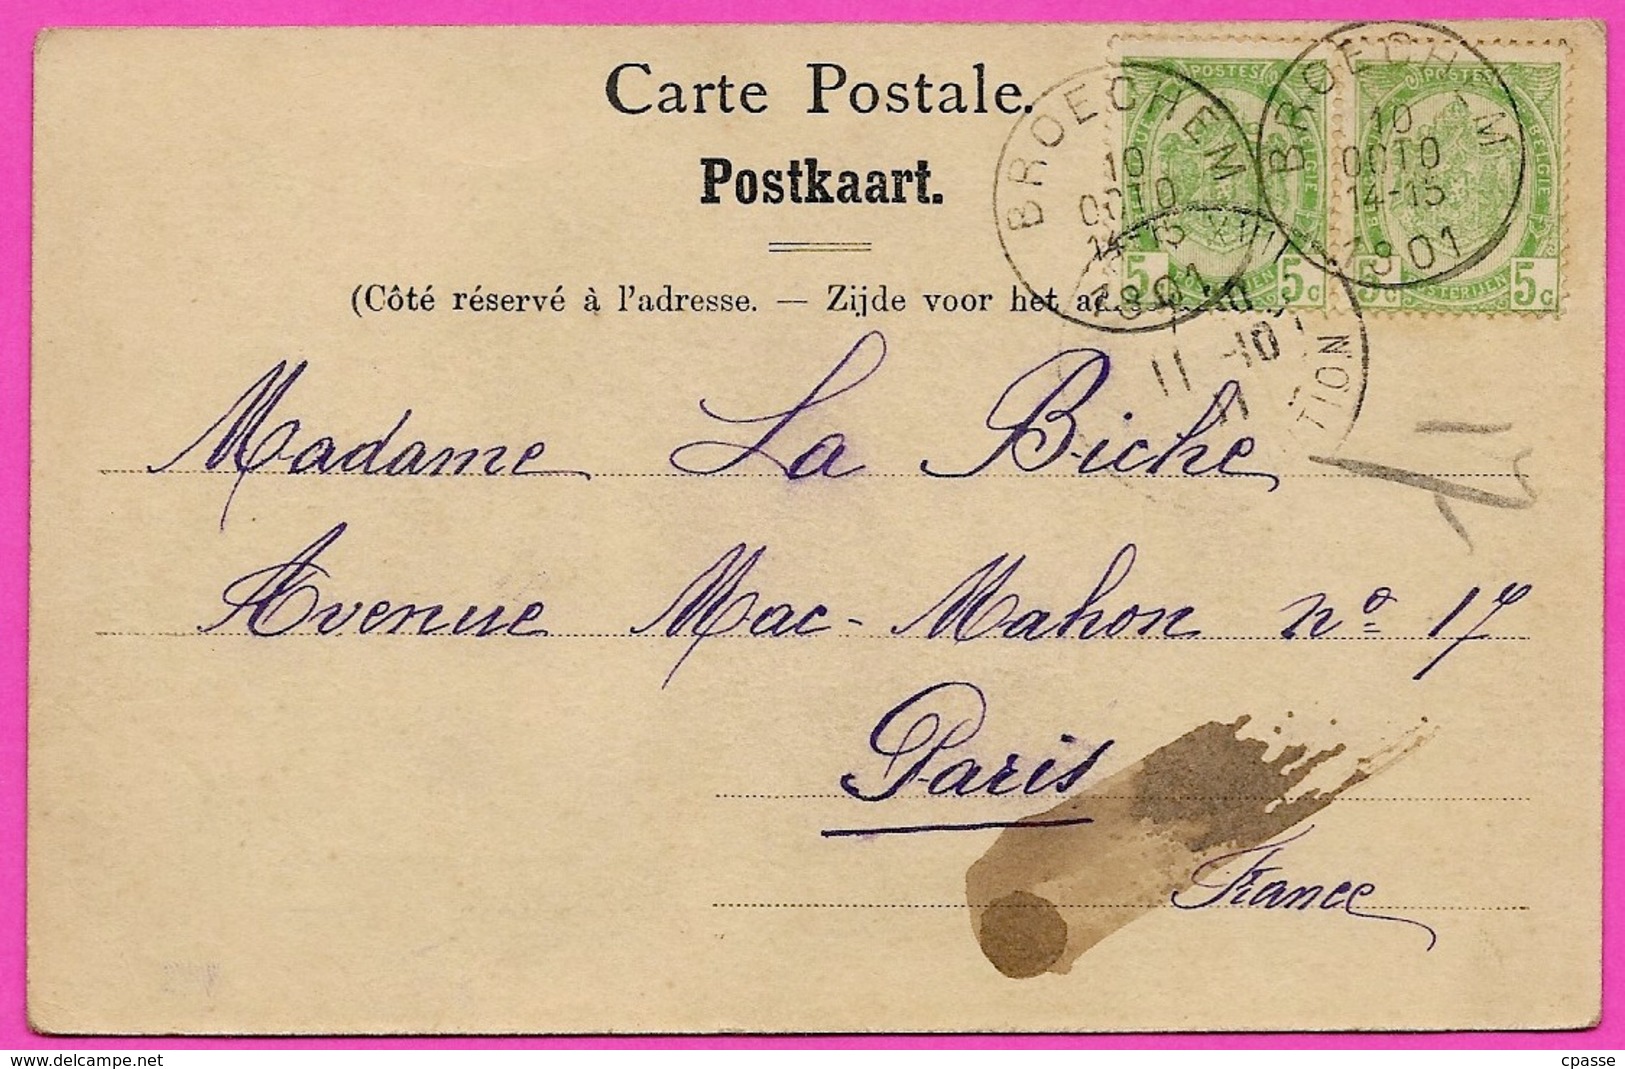 Carte Postale.
Postkaart.
(Côté réservé à l'adresse. — Zijde voor het
BROECHEM
10
OCTO
14-15
1901
BROECHEM
10
OCTO
14-15
1901
POSTES
BELGIQUE
BELGIE
POSTERIJEN
5c 5c
POSTES
BELGIQUE
BELGIE
POSTERIJEN
5c 5c
XVII
11 -10
TION
Madame La Biche
Avenue Mac-Mahon nº 17
Paris
France
delcampe.net
cpasse